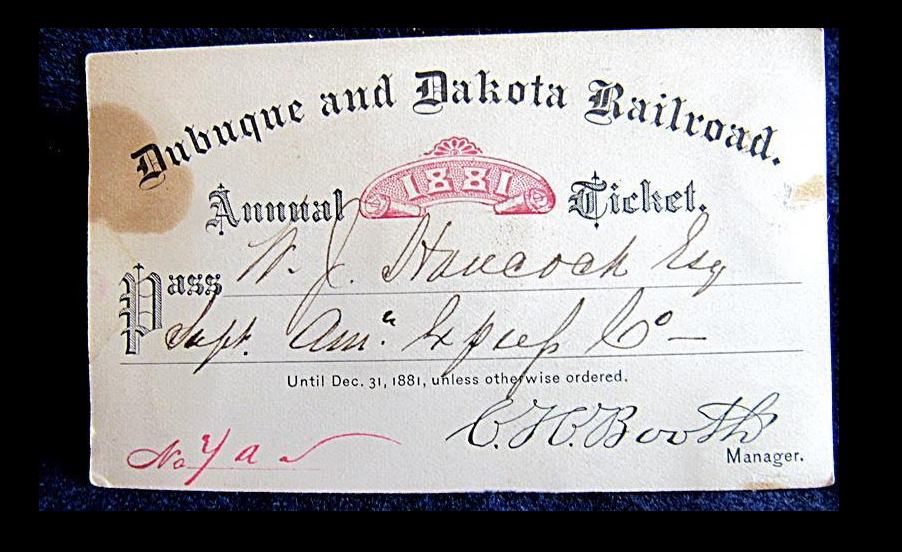 Dubuque and Dakota Railroad.
Annual 1881 Ticket.
Pass W. J. Hancock Esq
Supt. Amn. Express Co —
Until Dec. 31, 1881, unless otherwise ordered.
C. H. Booth
Manager.
No